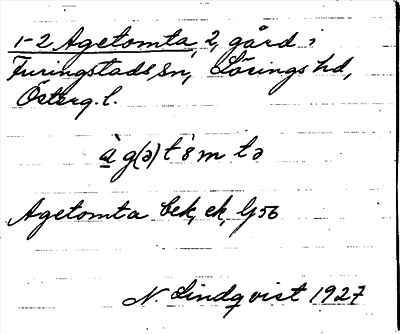 1-2 Agetomta, 2, gård i
Furingstads sn, Lösings hd,
Österg.l.
à g(ə) t ò m t ə
Agetomta bek, ek, Gj56
N. Lindqvist 1927